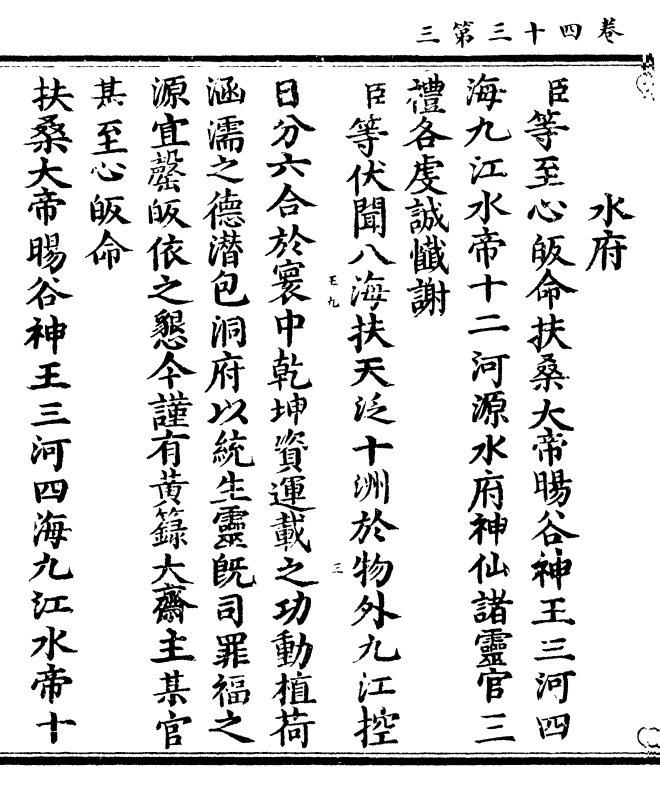 卷四十三第三
水府
臣等至心皈命扶桑大帝暘谷神王三河四
海九江水帝十二河源水府神仙諸靈官三
禮各虔誠懺謝
臣等伏聞八海扶天泛十洲於物外九江控
日分六合於寰中乾坤資運載之功動植荷
涵濡之德潛包洞府以統生靈旣司罪福之
源宜罄皈依之懇今謹有黃籙大齋主某官
某至心皈命
扶桑大帝暘谷神王三河四海九江水帝十